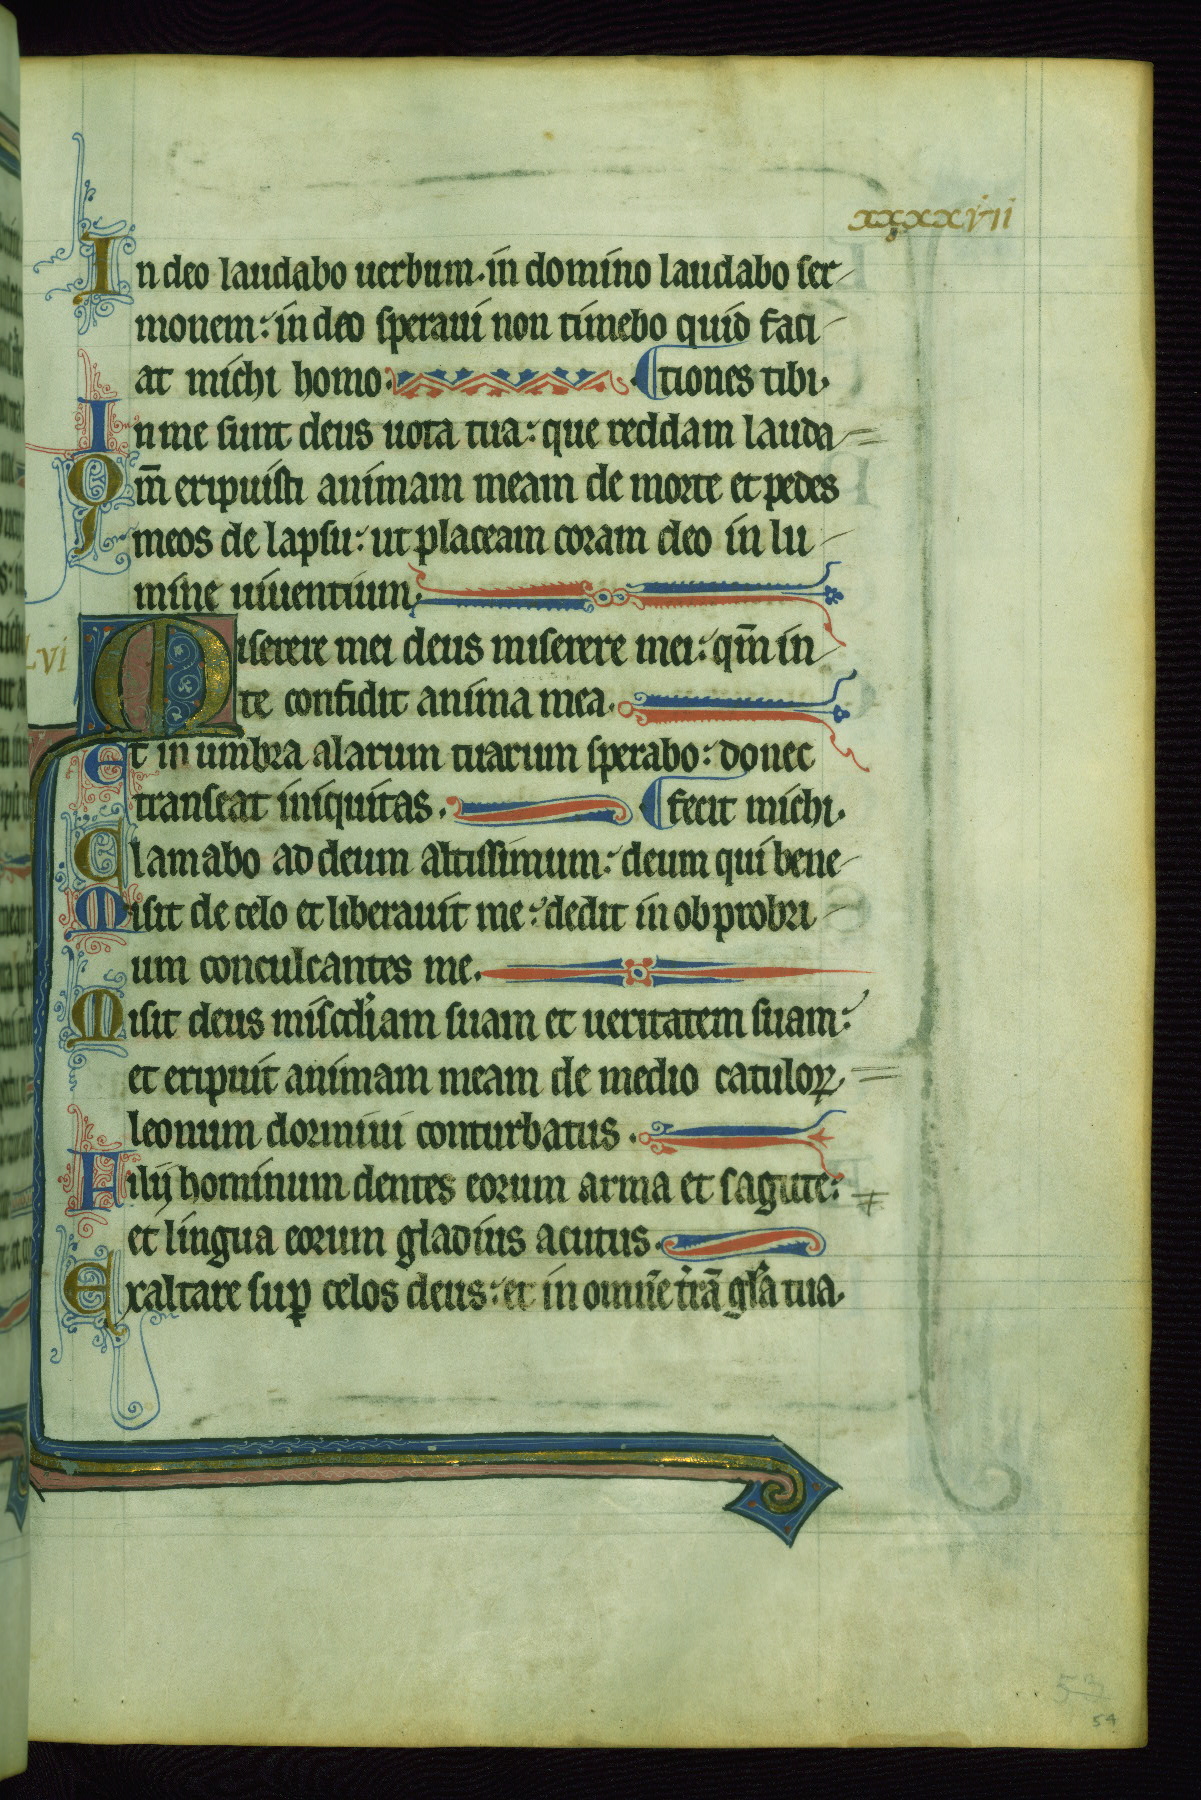 xxxxvii
In deo laudabo uerbum. in domino laudabo ser
monem: in deo speraui non timebo quid faci
at michi homo. tiones tibi.
In me sunt deus uota tua: que reddam lauda
Qm̄ eripuisti animam meam de morte et pedes
meos de lapsu: ut placeam coram deo in lu
mine uiuentium.
Lvi
Miserere mei deus miserere mei: qm̄ in
te confidit anima mea.
Et in umbra alarum tuarum sperabo: donec
transeat iniquitas. fecit michi.
Clamabo ad deum altissimum: deum qui bene
Misit de celo et liberauit me: dedit in obprobri
um conculcantes me.
Misit deus miscd̓iam suam et ueritatem suam:
et eripuit animam meam de medio catuloꝝ
leonum dormiui conturbatus.
Filij hominum dentes eorum arma et sagitte:
et lingua eorum gladius acutus.
Exaltare suꝑ celos deus: et in omnē t̓rā gl̓a tua.
53
54